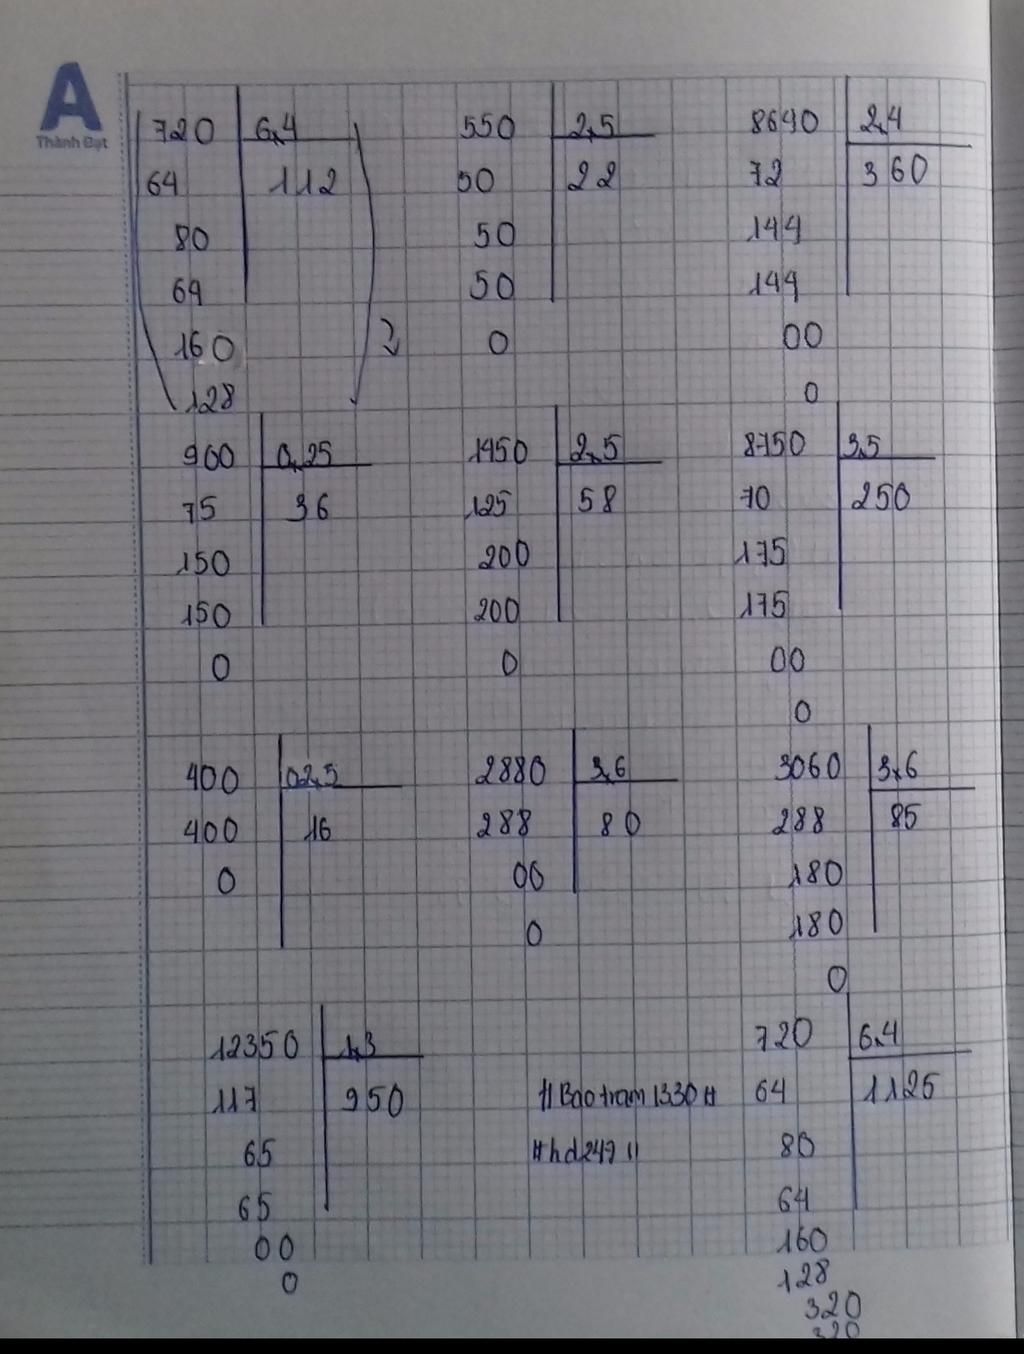 A
Thành Đạt
720 6,4
64 112
80
64
160
128
550 2,5
50 22
50
50
0
8640 2,4
72 360
144
144
00
0
900 0,25
75 36
150
150
0
1450 2,5
125 58
200
200
0
8750 3,5
70 250
175
175
00
0
400 02,5
400 16
0
2880 3,6
288 80
00
0
3060 3,6
288 85
180
180
0
12350 1,3
117 950
65
65
00
0
#Baotram1330#
#hd247#
720 6,4
64 1125
80
64
160
128
320
320